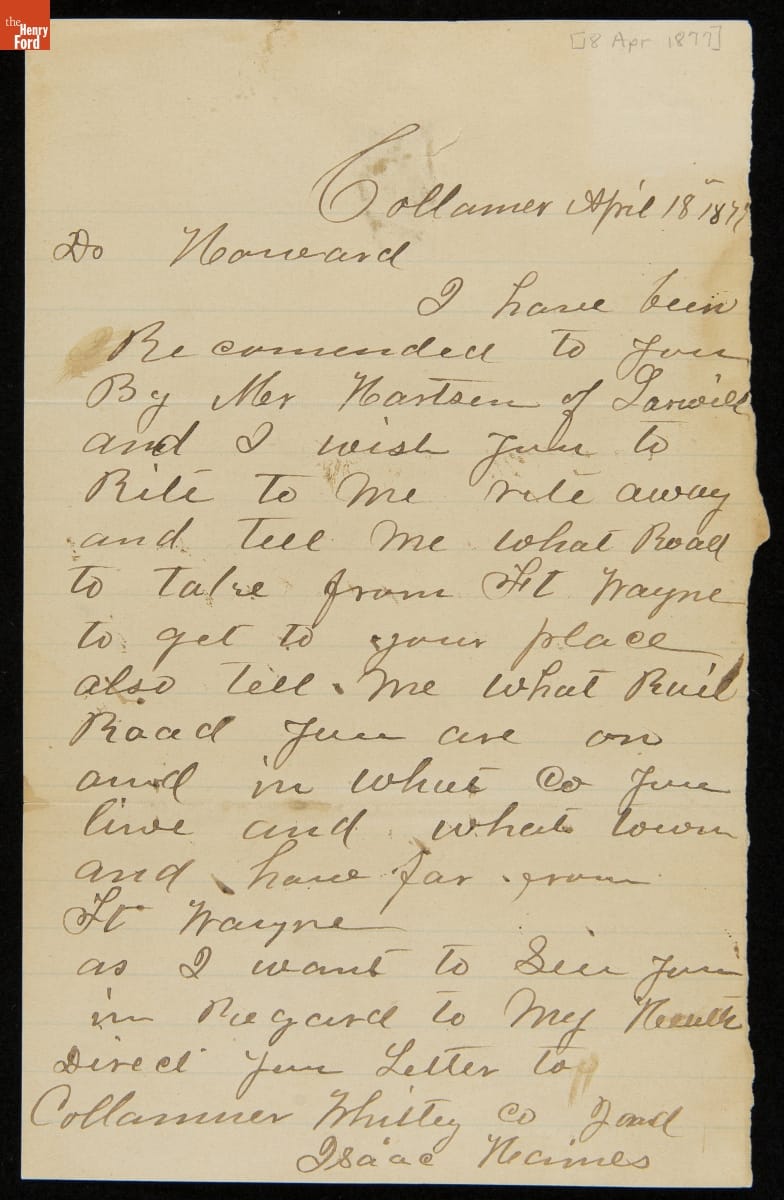 the
Henry
Ford
[18 Apr 1877]
Collamer April 18th 1877
Do Howard
I have been
Recomended to you
By Mr Hartsen of Larwill
and I wish you to
Rite to Me rite away
and tell Me what Road
to take from Ft Wayne
to get to your place
also tell Me what Rail
Road you are on
and in what Co you
live and what town
and how far from
Ft Wayne
as I want to See you
in Regard to My Health
Direct your Letter to
Collammer Whitley Co Ind
Isaac Haines